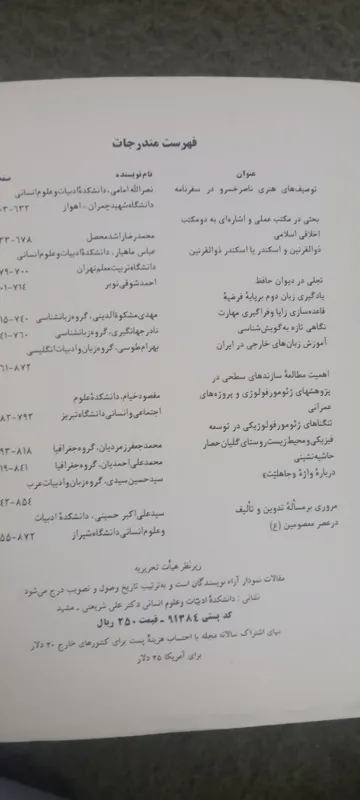 فهرست مندرجات
عنوان نام نویسنده
توصیف‌های هنری ناصرخسرو در سفرنامه نصرالله امامی، دانشکدهٔ ادبیات و علوم انسانی
دانشگاه شهید چمران - اهواز ۶۳۲-
بحثی در مکتب عملی و اشاره‌ای به دو مکتب
اخلاقی اسلامی محمدرضا راشد محصل ۶۷۸-
ذوالقرنین و اسکندر یا اسکندر ذوالقرنین عباس ماهیار، دانشکدهٔ ادبیات و علوم انسانی
دانشگاه تربیت معلم تهران ۷۹-۷۰۰
تجلی در دیوان حافظ احمد شوقی نوبر ۰۱-۷۱۴
یادگیری زبان دوم برپایهٔ فرضیهٔ
قاعده‌سازی زایا و فراگیری مهارت مهدی مشکوةالدینی، گروه زبانشناسی ۱۵-۷۴۰
نگاهی تازه به گویش‌شناسی نادر جهانگیری، گروه زبانشناسی ۴۱-۷۶۰
آموزش زبان‌های خارجی در ایران بهرام طوسی، گروه زبان و ادبیات انگلیسی
۶۱-۸۷۲
اهمیت مطالعهٔ سازندهای سطحی در
پژوهشهای ژئومورفولوژی و پروژه‌های مقصود خیام، دانشکدهٔ علوم
عمرانی اجتماعی و انسانی دانشگاه تبریز ۸۲-۷۹۳
تنگناهای ژئومورفولوژیکی در توسعه
فیزیکی و محیط زیست روستای گلیان حصار محمد جعفر زمردیان، گروه جغرافیا ۹۳-۸۱۸
حاشیه‌نشینی محمد علی احمدیان، گروه جغرافیا ۱۹-۸۴۱
دربارهٔ واژهٔ «جاهلیّت» سید حسین سیدی، گروه زبان و ادبیات عرب
۴۲-۸۵۴
مروری بر مسألهٔ تدوین و تألیف سید علی اکبر حسینی، دانشکدهٔ ادبیات
در عصر معصومین (ع) و علوم انسانی دانشگاه شیراز ۵۵-۸۷۲
زیرنظر هیأت تحریریه
مقالات نمودار آراء نویسندگان است و به‌ترتیب تاریخ وصول و تصویب درج می‌شود
نشانی : دانشکدهٔ ادبیّات و علوم انسانی دکتر علی شریعتی ـ مشهد
کد پستی ۹۱۳۸۴ ـ قیمت ۲۵۰ ریال
بهای اشتراک سالانه مجله با احتساب هزینهٔ پست برای کشورهای خارج ۲۰ دلار
برای آمریکا ۲۵ دلار